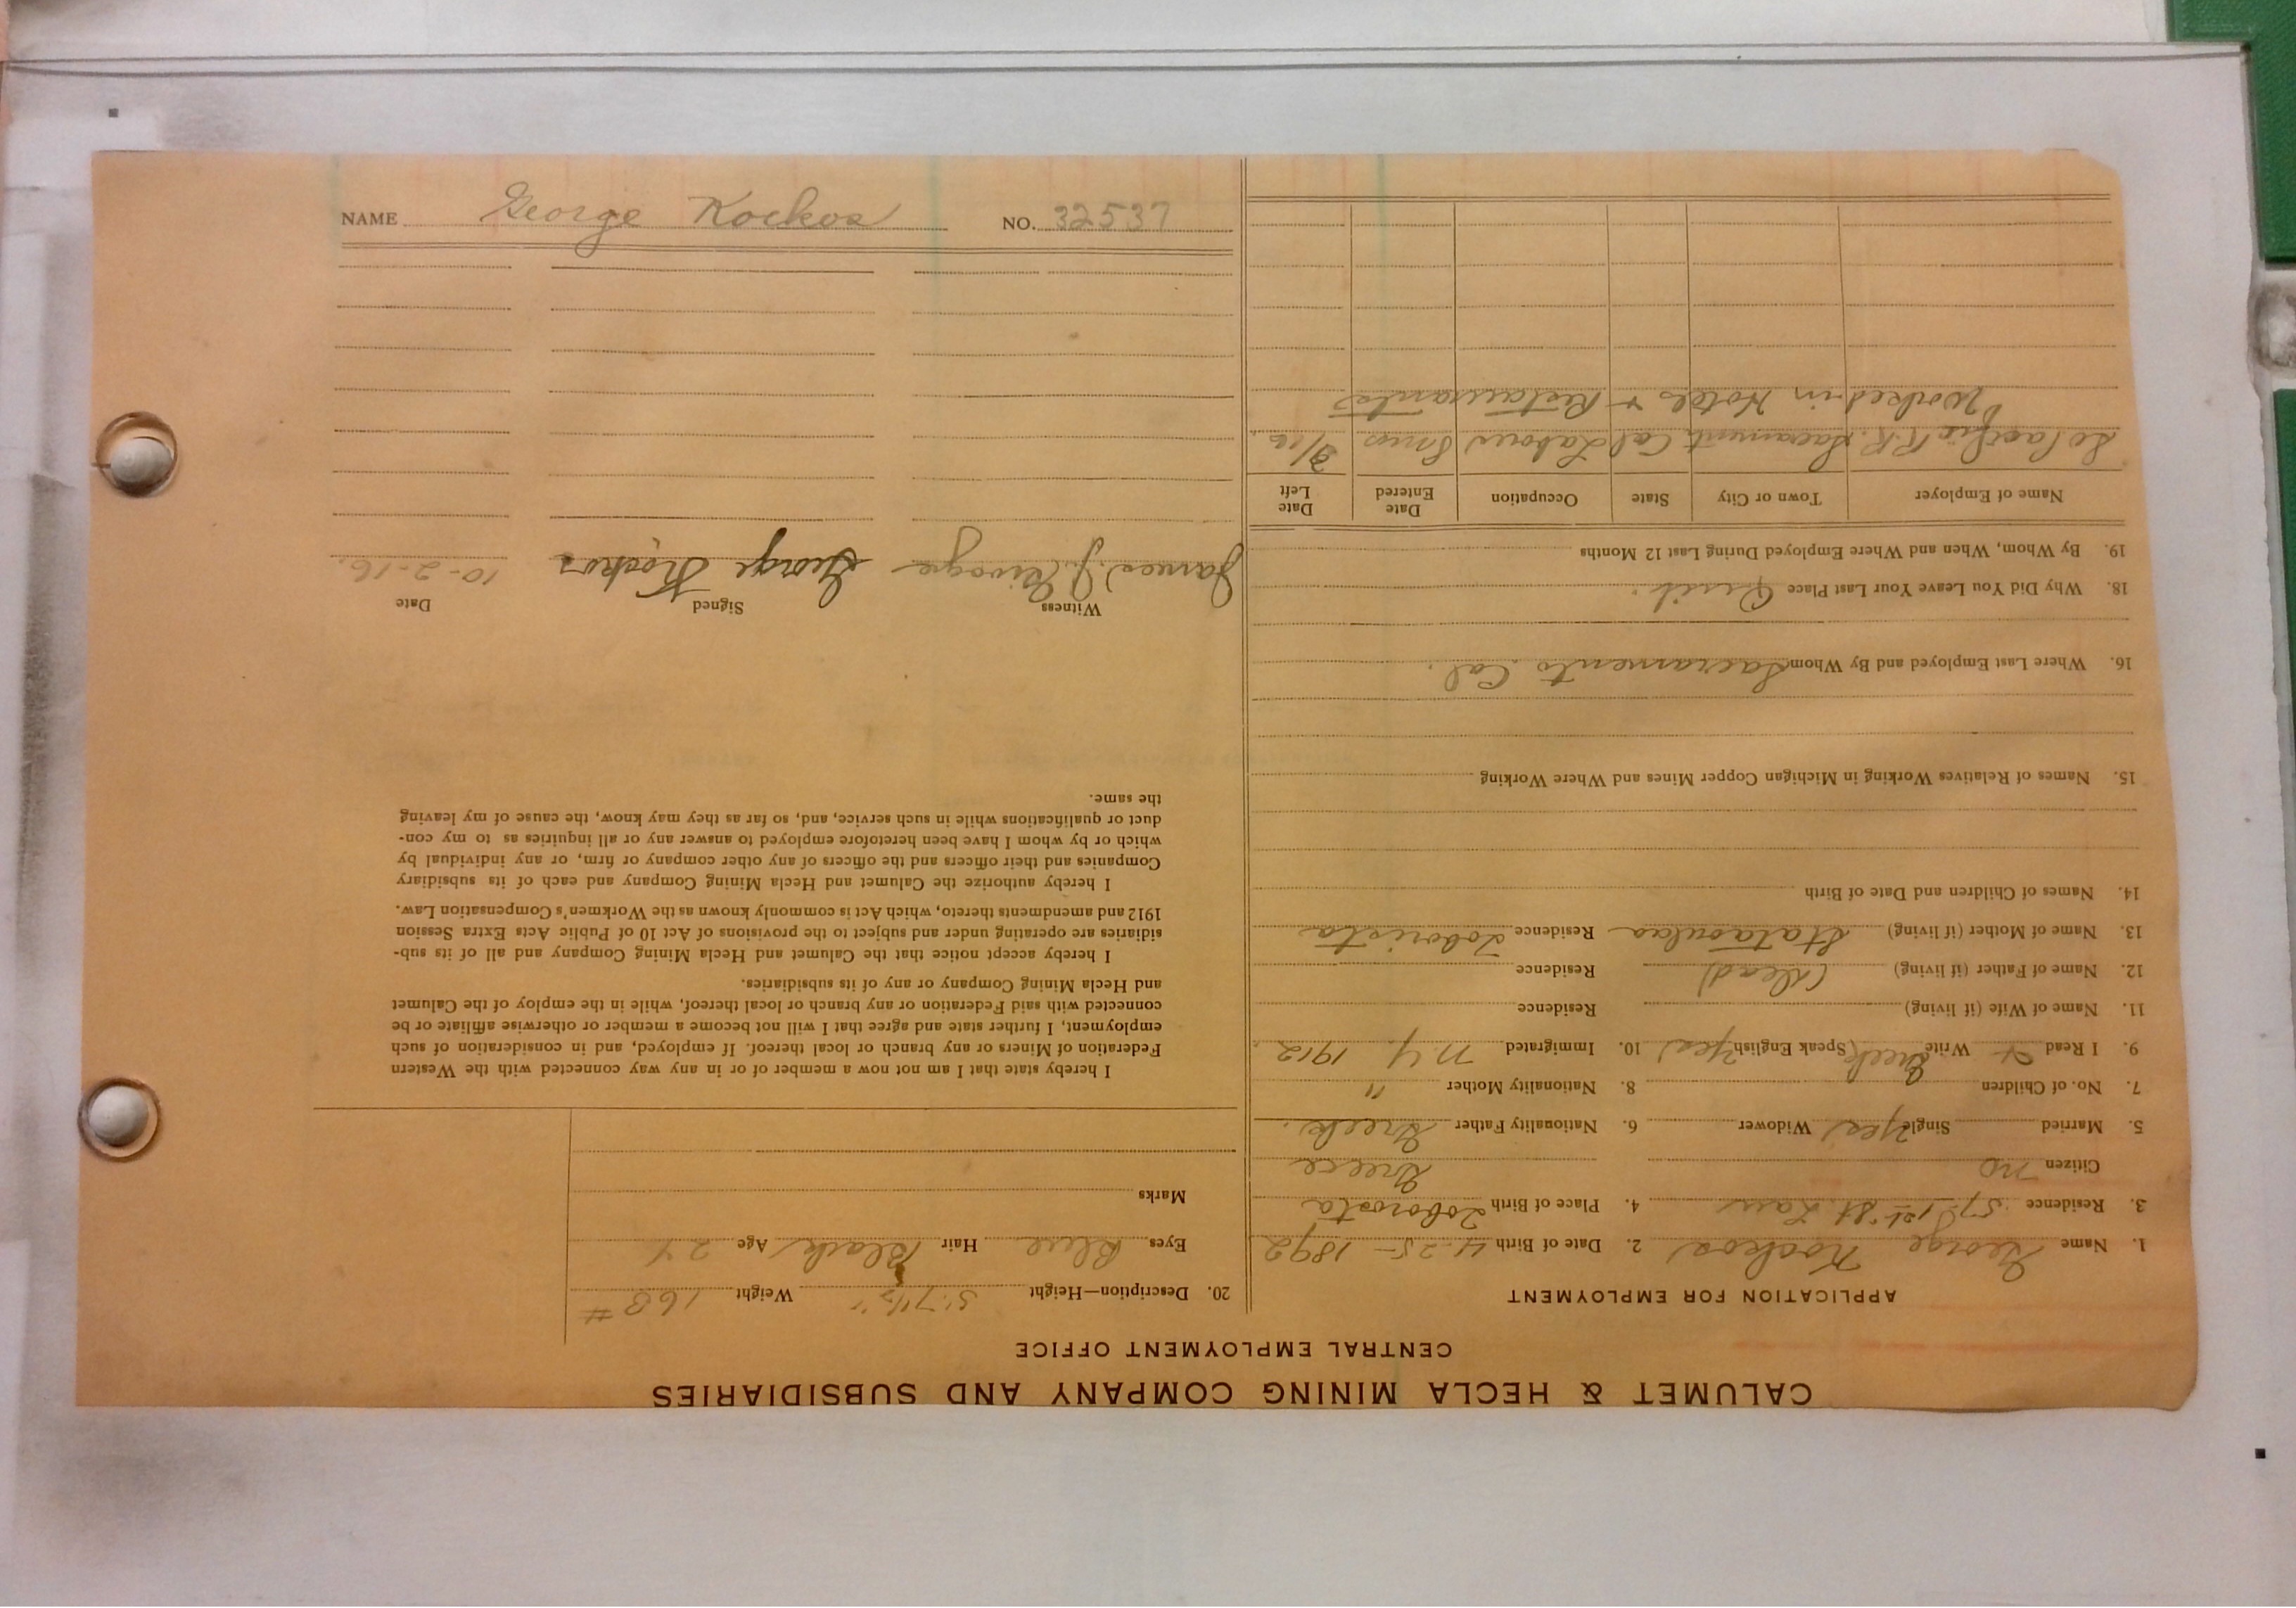 CALUMET & HECLA MINING COMPANY AND SUBSIDIARIES
CENTRAL EMPLOYMENT OFFICE
APPLICATION FOR EMPLOYMENT
1. Name George Kockos 2. Date of Birth 4-25-1892
3. Residence 57-1st St. Laur 4. Place of Birth
Citizen no Greece
5. Married Single Yes Widower 6. Nationality Father Greek.
7. No. of Children 8. Nationality Mother "
9. I Read & Write Greek (Speak English) Yes 10. Immigrated N.Y. 1912
11. Name of Wife (if living) Residence
12. Name of Father (if living) (dead) Residence
13. Name of Mother (if living) Residence
14. Names of Children and Date of Birth
15. Names of Relatives Working in Michigan Copper Mines and Where Working
16. Where Last Employed and By Whom Sacramento Cal.
18. Why Did You Leave Your Last Place Quit.
19. By Whom, When and Where Employed During Last 12 Months
Name of Employer Town or City State Occupation Date Entered Date Left
So Pacific R.R. Sacramento Cal Labour 8mos 8/16
Worked in Hotels & Restaurants
20. Description—Height 5'. 7 1/2" Weight 168 #
Eyes Blue Hair Black Age 24
Marks
I hereby state that I am not now a member of or in any way connected with the Western
Federation of Miners or any branch or local thereof. If employed, and in consideration of such
employment, I further state and agree that I will not become a member or otherwise affiliate or be
connected with said Federation or any branch or local thereof, while in the employ of the Calumet
and Hecla Mining Company or any of its subsidiaries.
I hereby accept notice that the Calumet and Hecla Mining Company and all of its sub-
sidiaries are operating under and subject to the provisions of Act 10 of Public Acts Extra Session
1912 and amendments thereto, which Act is commonly known as the Workmen's Compensation Law.
I hereby authorize the Calumet and Hecla Mining Company and each of its subsidiary
Companies and their officers and the officers of any other company or firm, or any individual by
which or by whom I have been heretofore employed to answer any or all inquiries as to my con-
duct or qualifications while in such service, and, so far as they may know, the cause of my leaving
the same.
Witness Signed Date
James J. George Kockos 10-2-16.
NAME George Kockos NO. 32537